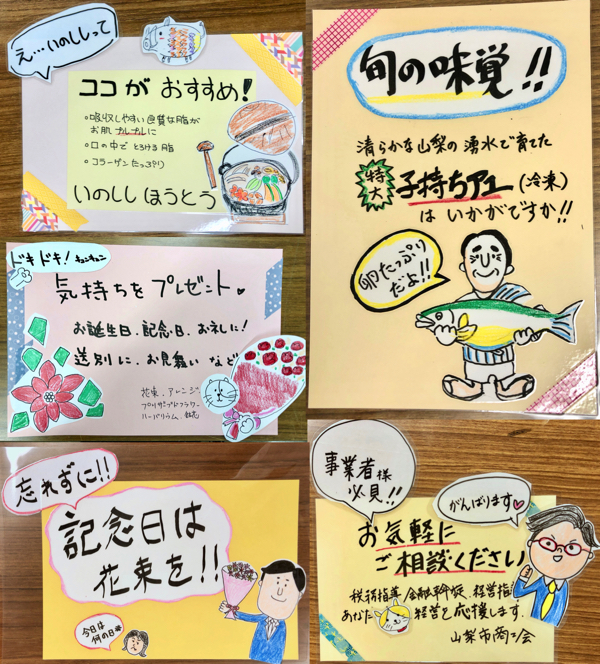 え…いのししって
ココが おすすめ!
○吸収しやすい良質な脂が
お肌プルプルに
○口の中でとろける脂
○コラーゲンたっぷり
いのしし ほうとう
旬の味覚!!
清らかな山梨の湧水で育てた
特大
子持ちアユ(冷凍)
は いかがですか!!
卵たっぷり
だよ!!
ドキドキ!
気持ちをプレゼント
お誕生日、記念日、お礼に!
送別に、お見舞い など
花束、アレンジ
プリザーブドフラワー
ハーバリウム、
忘れずに!!
記念日は
花束を!!
今日は
何の日
事業者様
必見!!
がんばります♡
お気軽に
ご相談ください
税務指導、金融斡旋、経営指
あなた
経営を応援します。
山梨市商工会